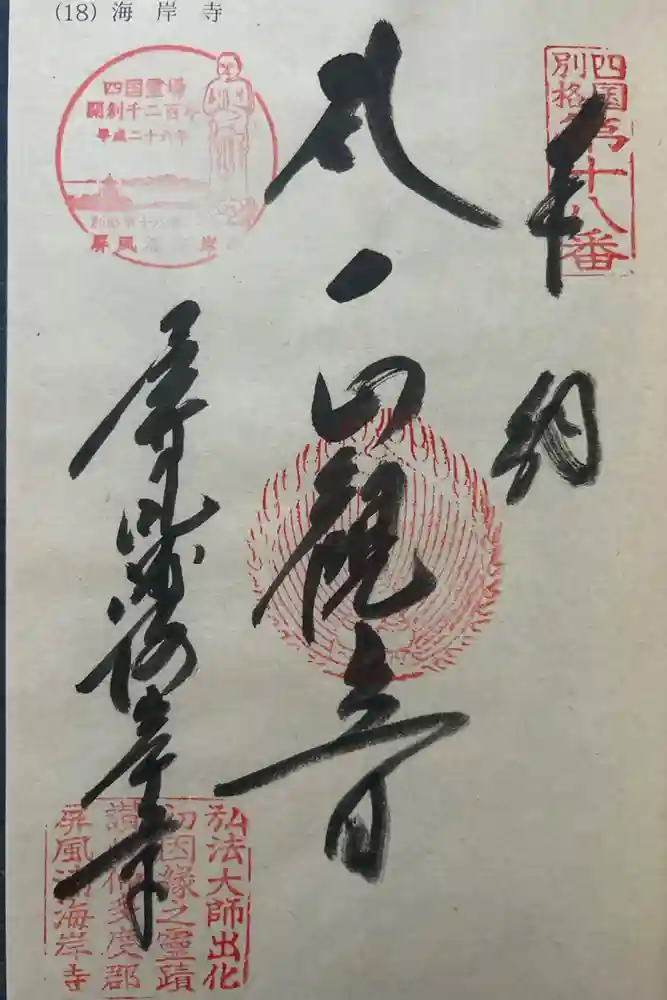 (18) 海岸寺
四国
別格
第十八番
奉納
観音
四国霊場
開創千二百年
平成二十六年
別格第十八番
屏風浦海岸寺
屏風浦海岸寺
弘法大師出化
初因縁之靈蹟
讃州仲多度郡
屏風浦海岸寺